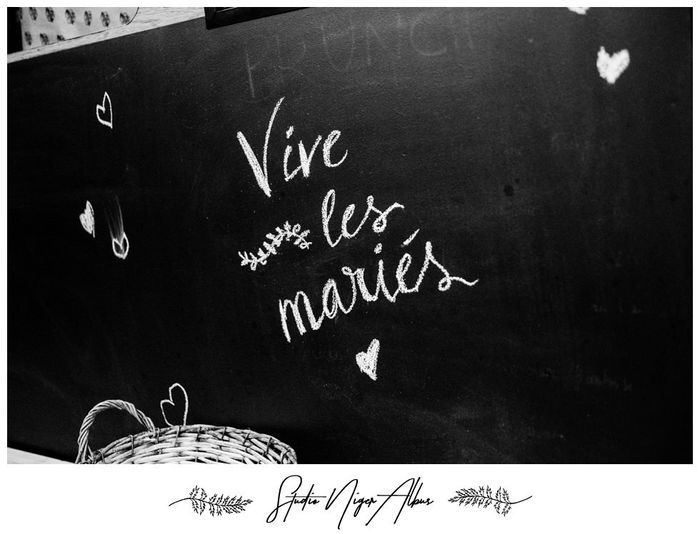 BRUNCH
Vive
les
mariés
Studio Niger Albus